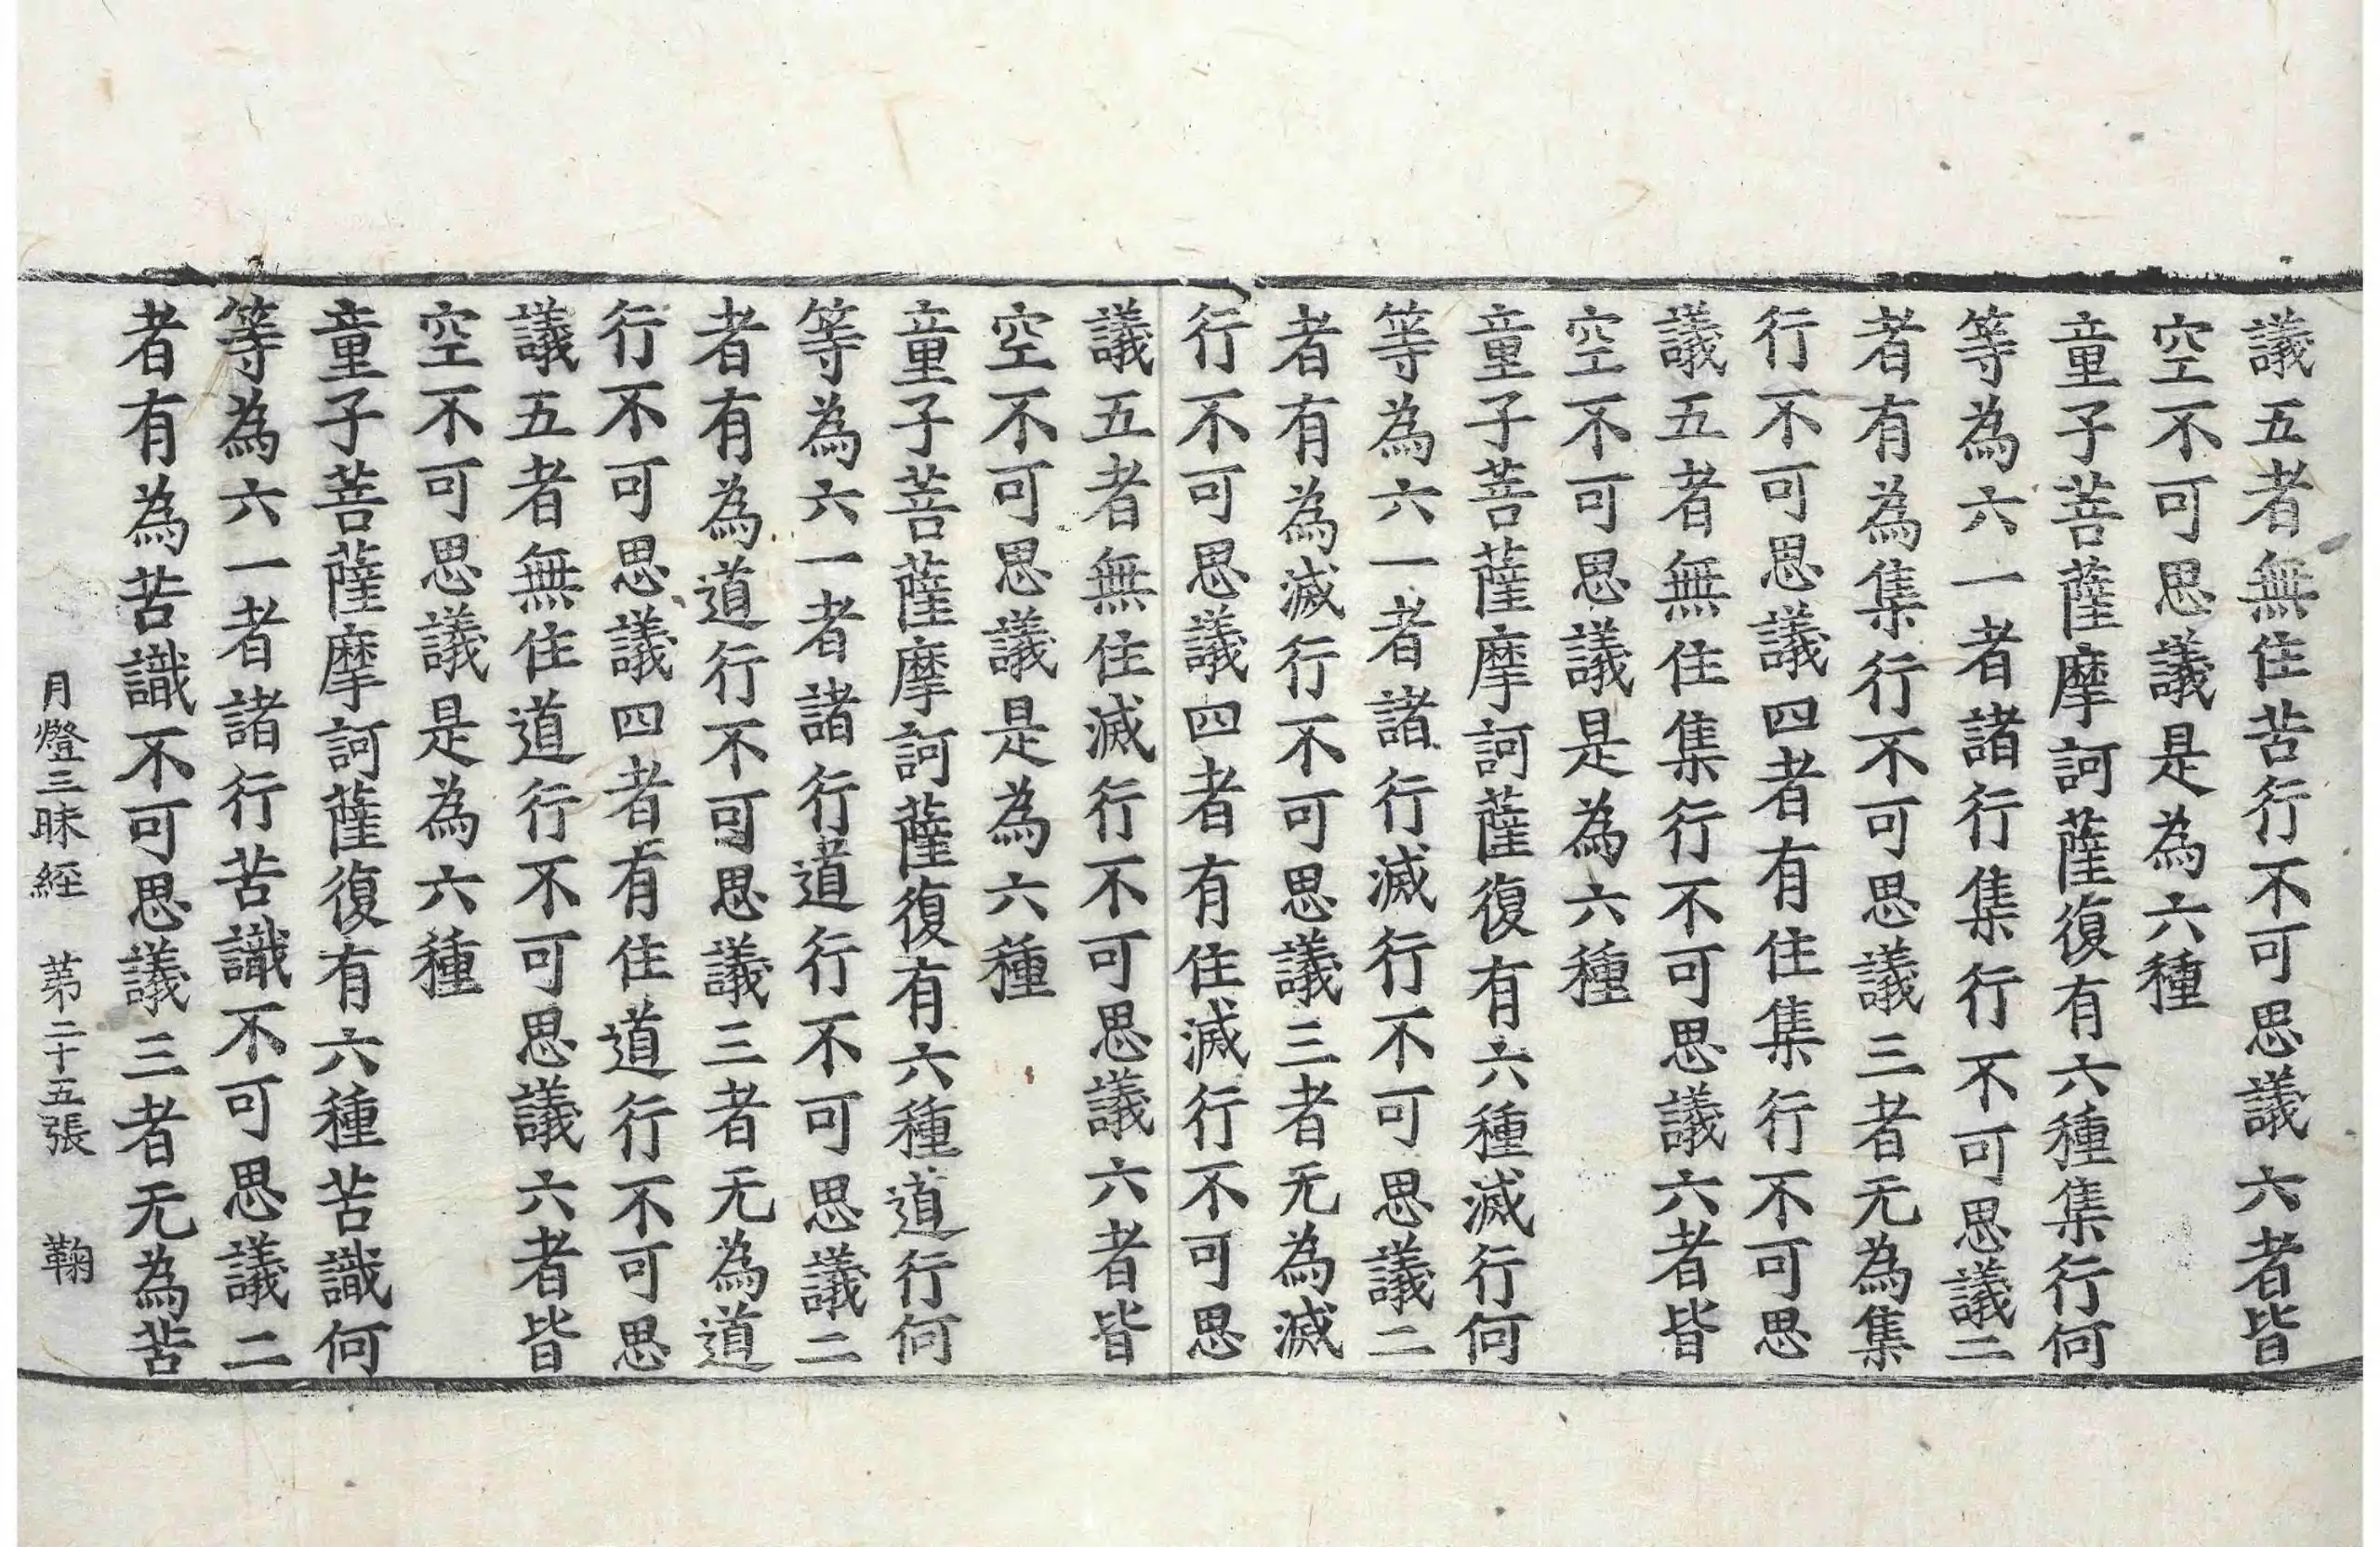 議五者無住苦行不可思議六者皆
空不可思議是為六種
童子菩薩摩訶薩復有六種集行何
等為六一者諸行集行不可思議二
者有為集行不可思議三者无為集
行不可思議四者有住集行不可思
議五者無住集行不可思議六者皆
空不可思議是為六種
童子菩薩摩訶薩復有六種滅行何
等為六一者諸行滅行不可思議二
者有為滅行不可思議三者无為滅
行不可思議四者有住滅行不可思
議五者無住滅行不可思議六者皆
空不可思議是為六種
童子菩薩摩訶薩復有六種道行何
等為六一者諸行道行不可思議二
者有為道行不可思議三者无為道
行不可思議四者有住道行不可思
議五者無住道行不可思議六者皆
空不可思議是為六種
童子菩薩摩訶薩復有六種苦識何
等為六一者諸行苦識不可思議二
者有為苦識不可思議三者无為苦
月燈三昧經 第二十五張 鞠